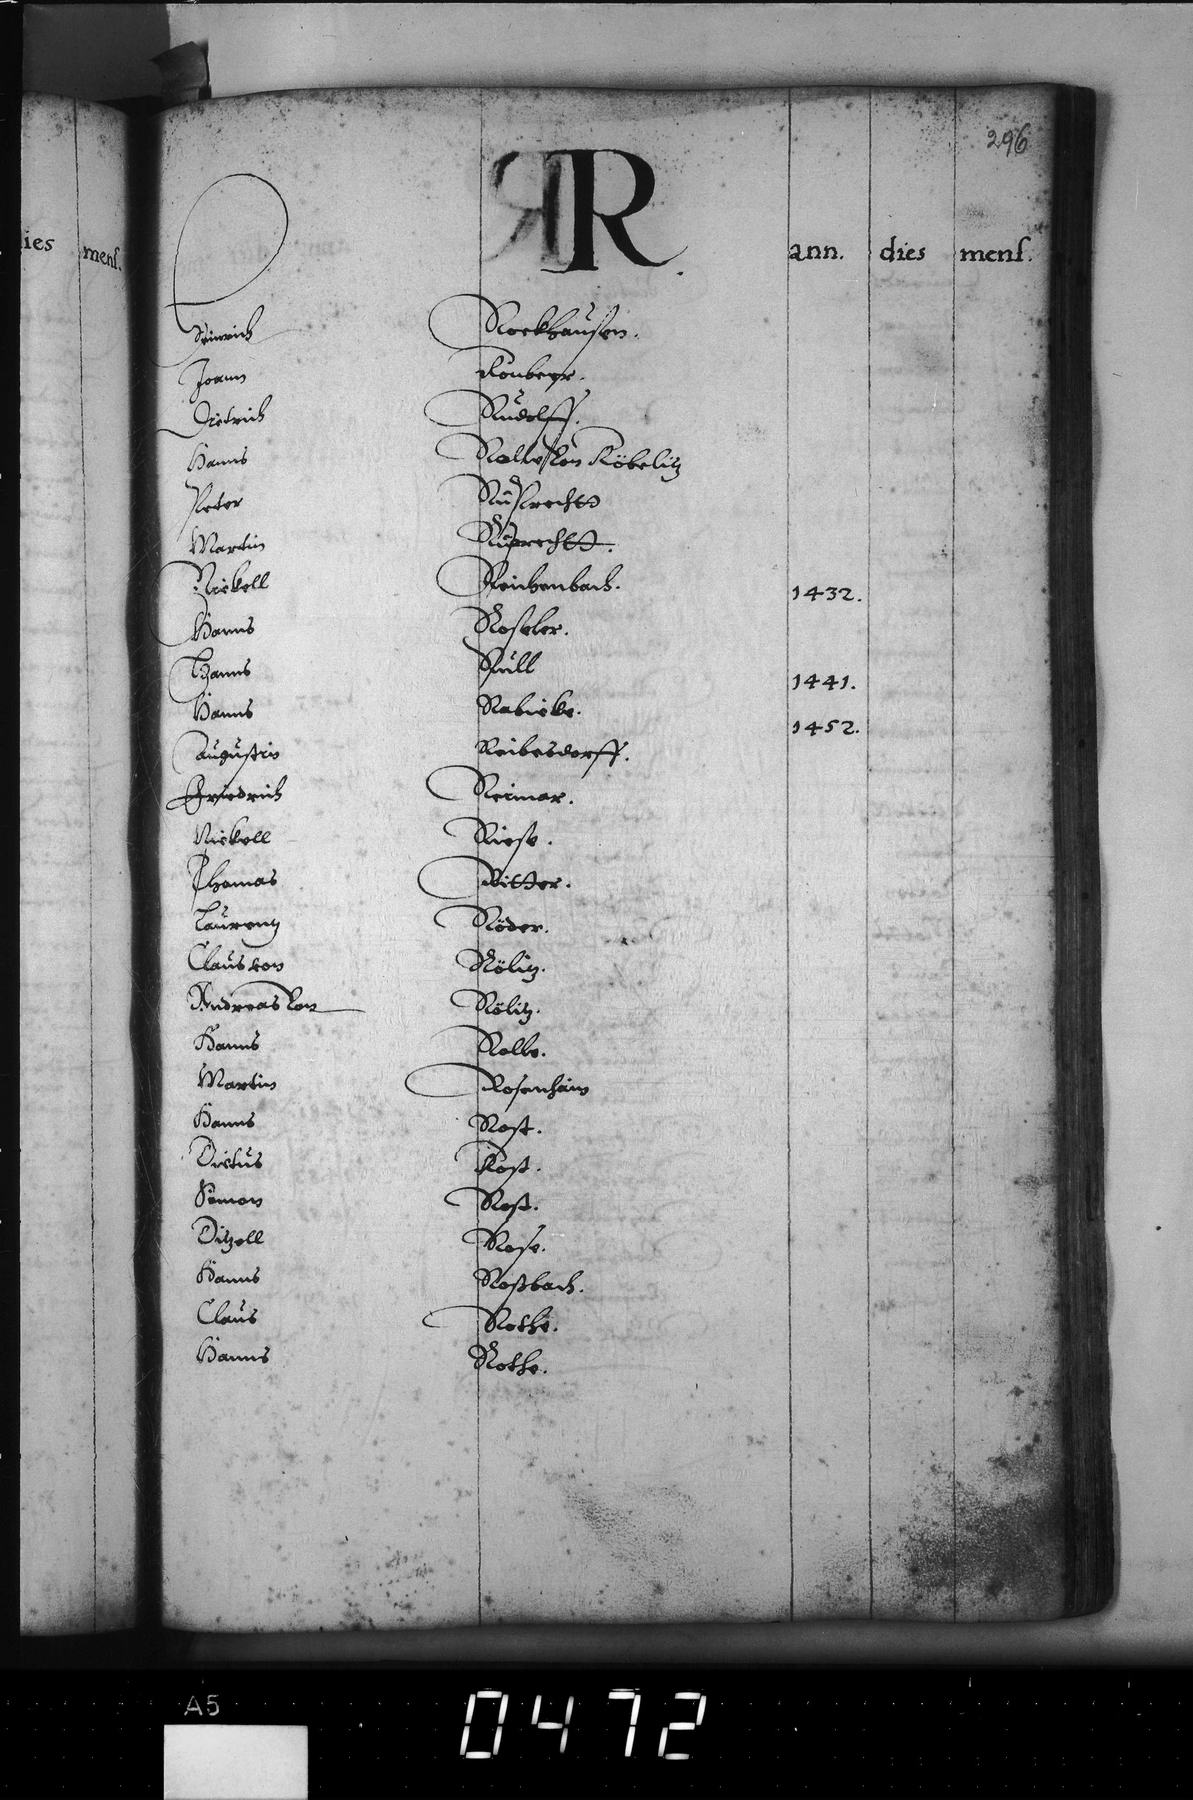 296
R
ies mens.
ann. dies mens.
Heinrich Rockhausen.
Joann Ronberr.
Dietrich Rudolff.
Hanns Rolle von Köbelitz
Peter Rupprechtt
Martin Ruprechtt.
Nickell Reichenbach. 1432.
Hanns Roseler.
Hanns Rull 1441.
Hanns Rabicke. 1452.
Augustin Reibesdorff.
Friedrich Reimar.
Nickell Riese.
Thomas Ritter.
Laurentz Röder.
Claus von Rölitz.
Andreas von Rölitz.
Hanns Rolle.
Martin Rosenhain
Hanns Rost.
Dictus Rost.
Simon Rost.
Ditzell Rose.
Hanns Roßbach.
Claus Rothe.
Hanns Rothe.
A5
0472